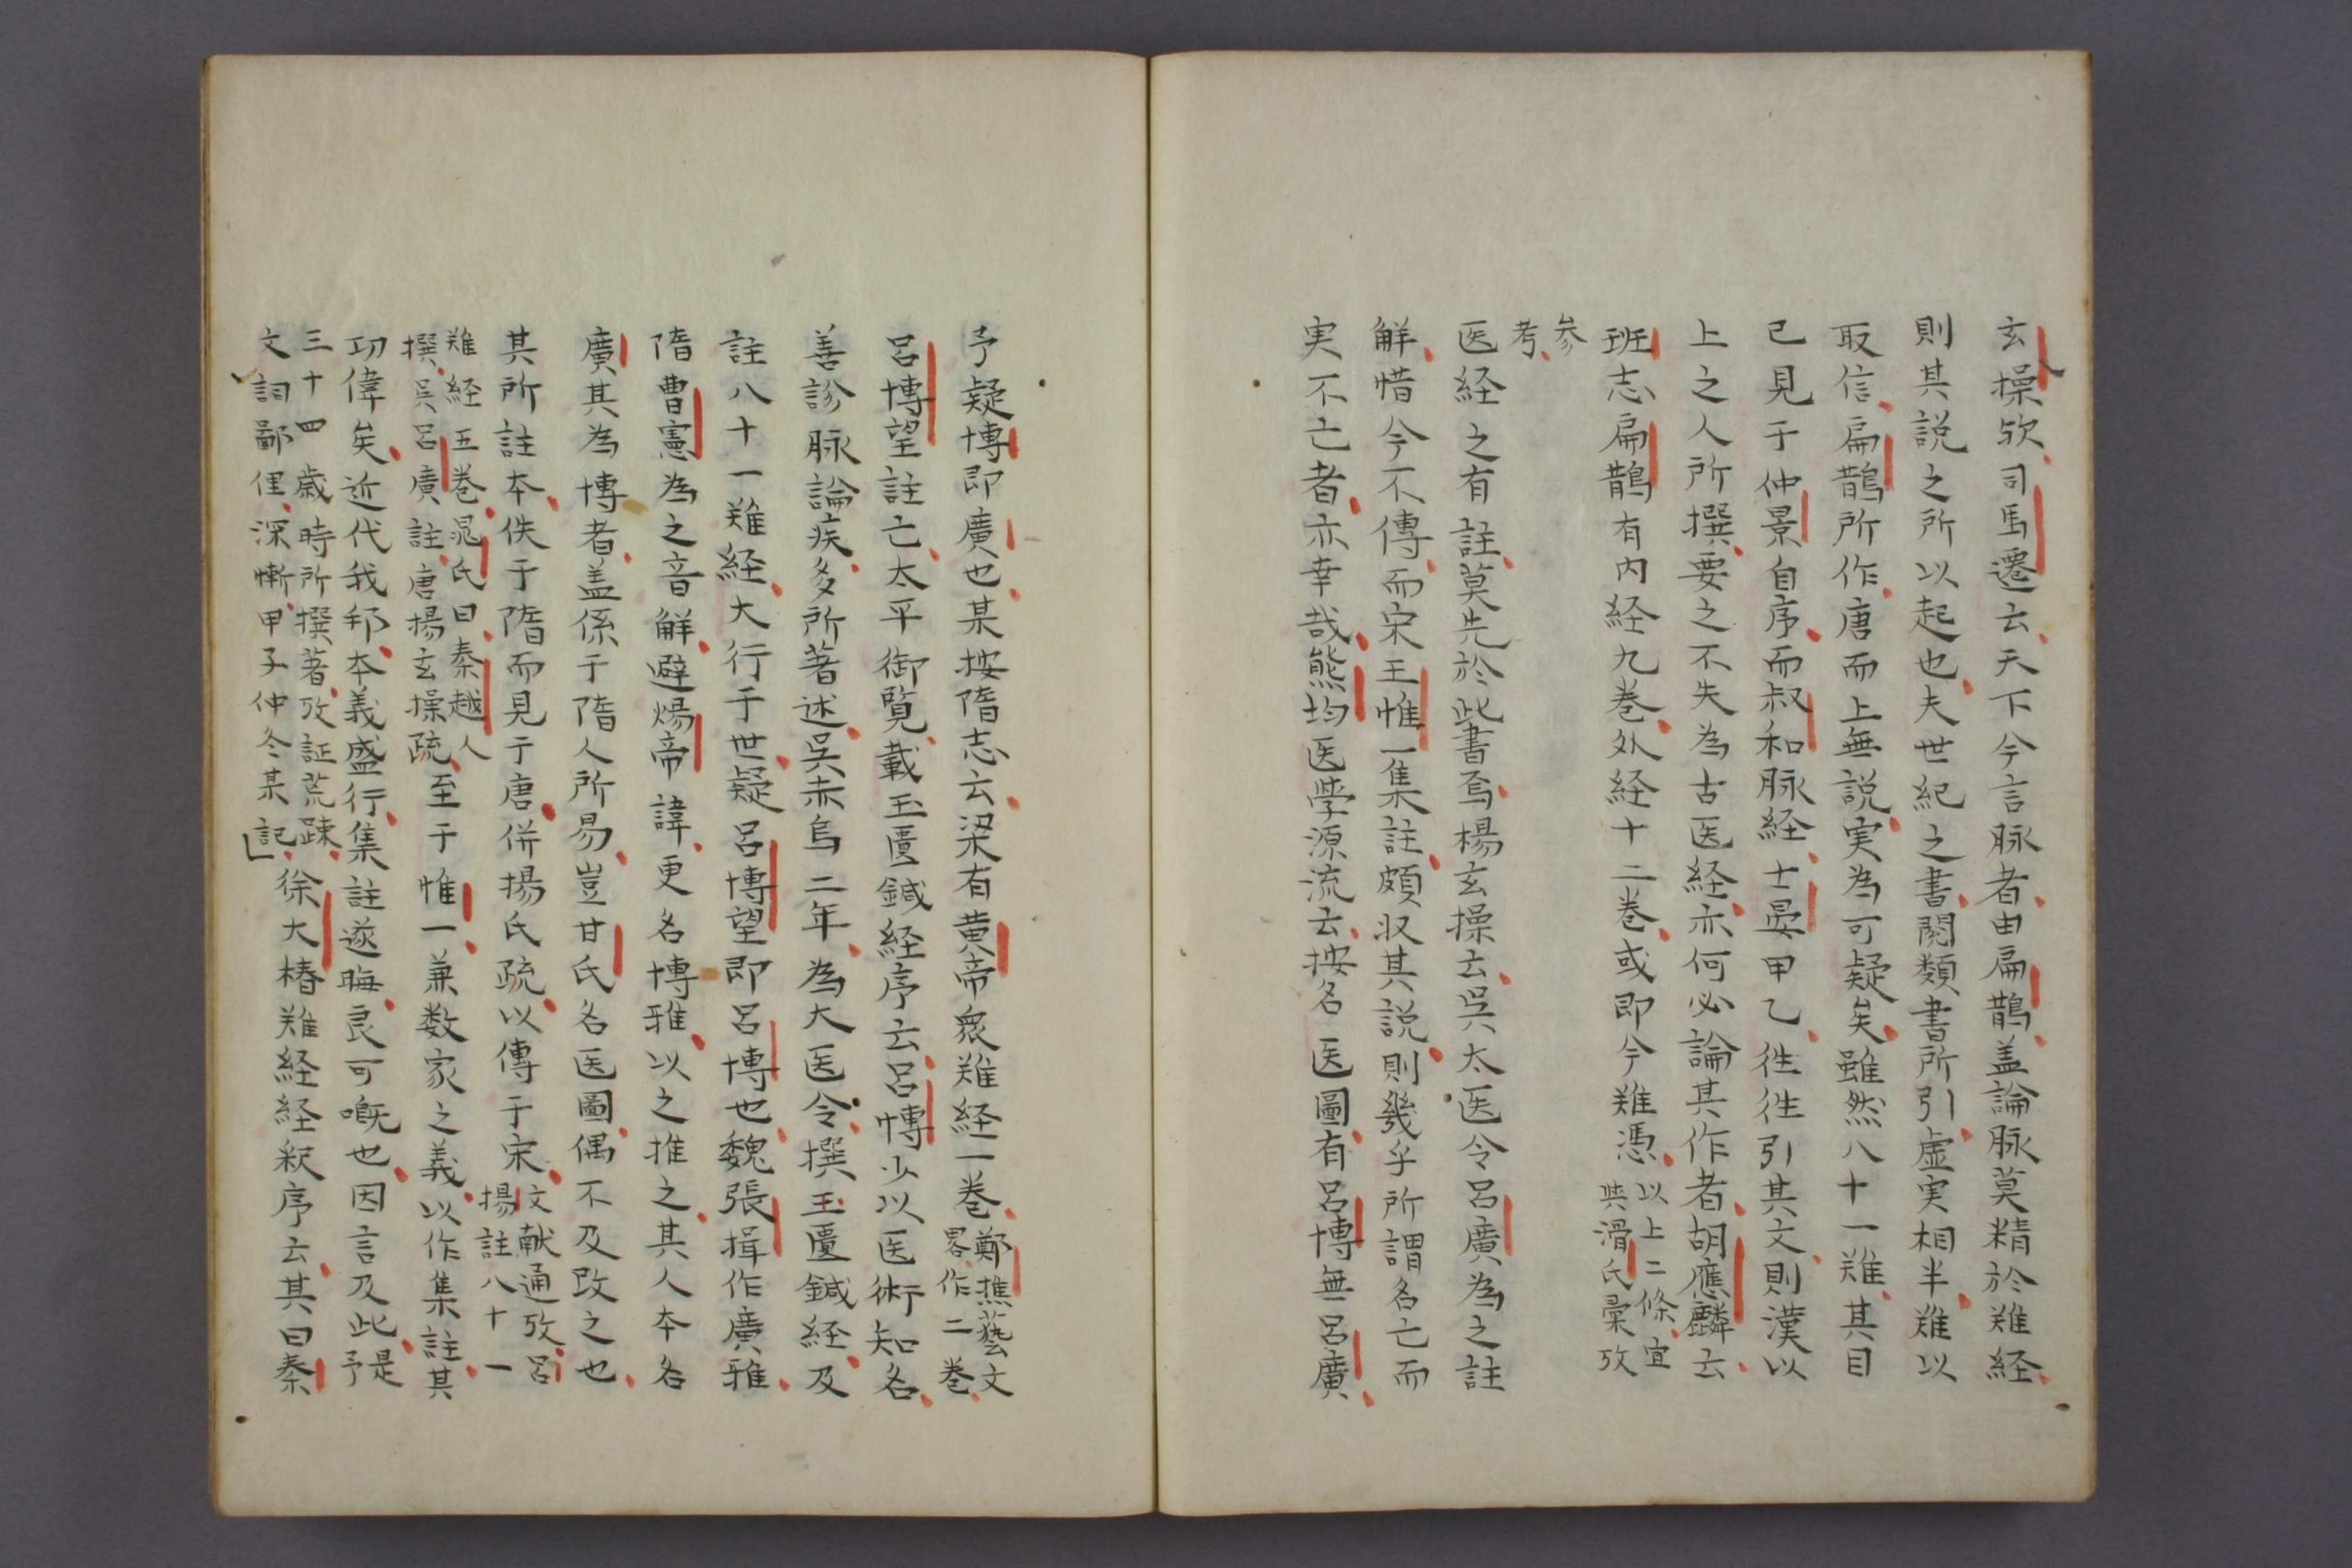 玄操欤司馬遷云天下今言脉者由扁鵲盖論脉莫精於難経
則其説之所以起也夫世紀之書閲類書所引虚実相半難以
取信扁鵲所作唐而上無説実為可疑矣雖然八十一難其目
已見于仲景自序而叔和脉経士晏甲乙徃徃引其文則漢以
上之人所撰要之不失為古医経亦何必論其作者胡應麟云
班志扁鵲有内経九巻外経十二巻或即今難憑以上二條宜
與滑氏彙攷
参
考
医経之有註莫先於此書焉楊玄操云呉太医令呂廣為之註
解惜今不傳而宋王惟一集註頗収其説則幾乎所謂名亡而
実不亡者亦幸哉熊均医學源流云按名医圖有呂博無呂廣
予疑博即廣也某按隋志云梁有黄帝衆難経一巻鄭樵藝文
畧作二巻
呂博望註亡太平御覧載玉匱鍼経序云呂博少以医術知名
善診脉論疾多所著述呉赤烏二年為大医令撰玉匱鍼経及
註八十一難経大行于世疑呂博望即呂博也魏張揖作廣雅
隋曹憲為之音解避煬帝諱更名博雅以之推之其人本名
廣其為博者盖係于隋人所易豈甘氏名医圖偶不及改之也
其所註本佚于隋而見于唐併揚氏疏以傳于宋文献通攷呂
揚註八十一
難経五巻晁氏曰秦越人
撰呉呂廣註唐揚玄操疏至于惟一兼数家之義以作集註其
功偉矣近代我邦本義盛行集註遂晦良可嘅也因言及此是
予
三十四歳時所撰著攷証荒踈
文詞鄙俚深慚甲子仲冬某記徐大椿難経経釈序云其曰秦